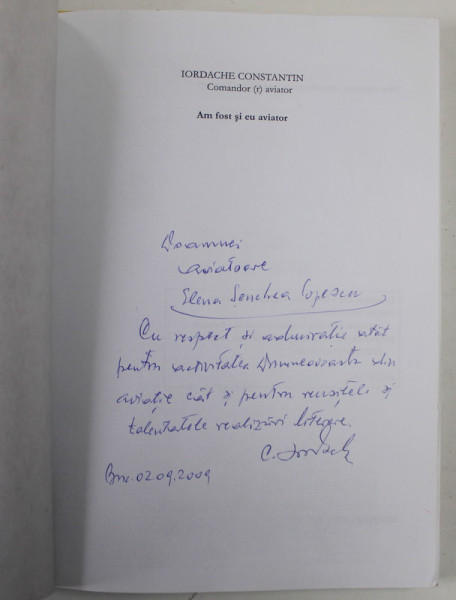 IORDACHE CONSTANTIN
Comandor (r) aviator
Am fost și eu aviator
Doamnei
aviatoare
Elena Șenchea Popescu
Cu respect și admirație atât
pentru activitatea Dumneavoastră din
aviație cât și pentru reușitele și
talentatele realizări literare.
C. Iordache
Buc. 02.09.2009